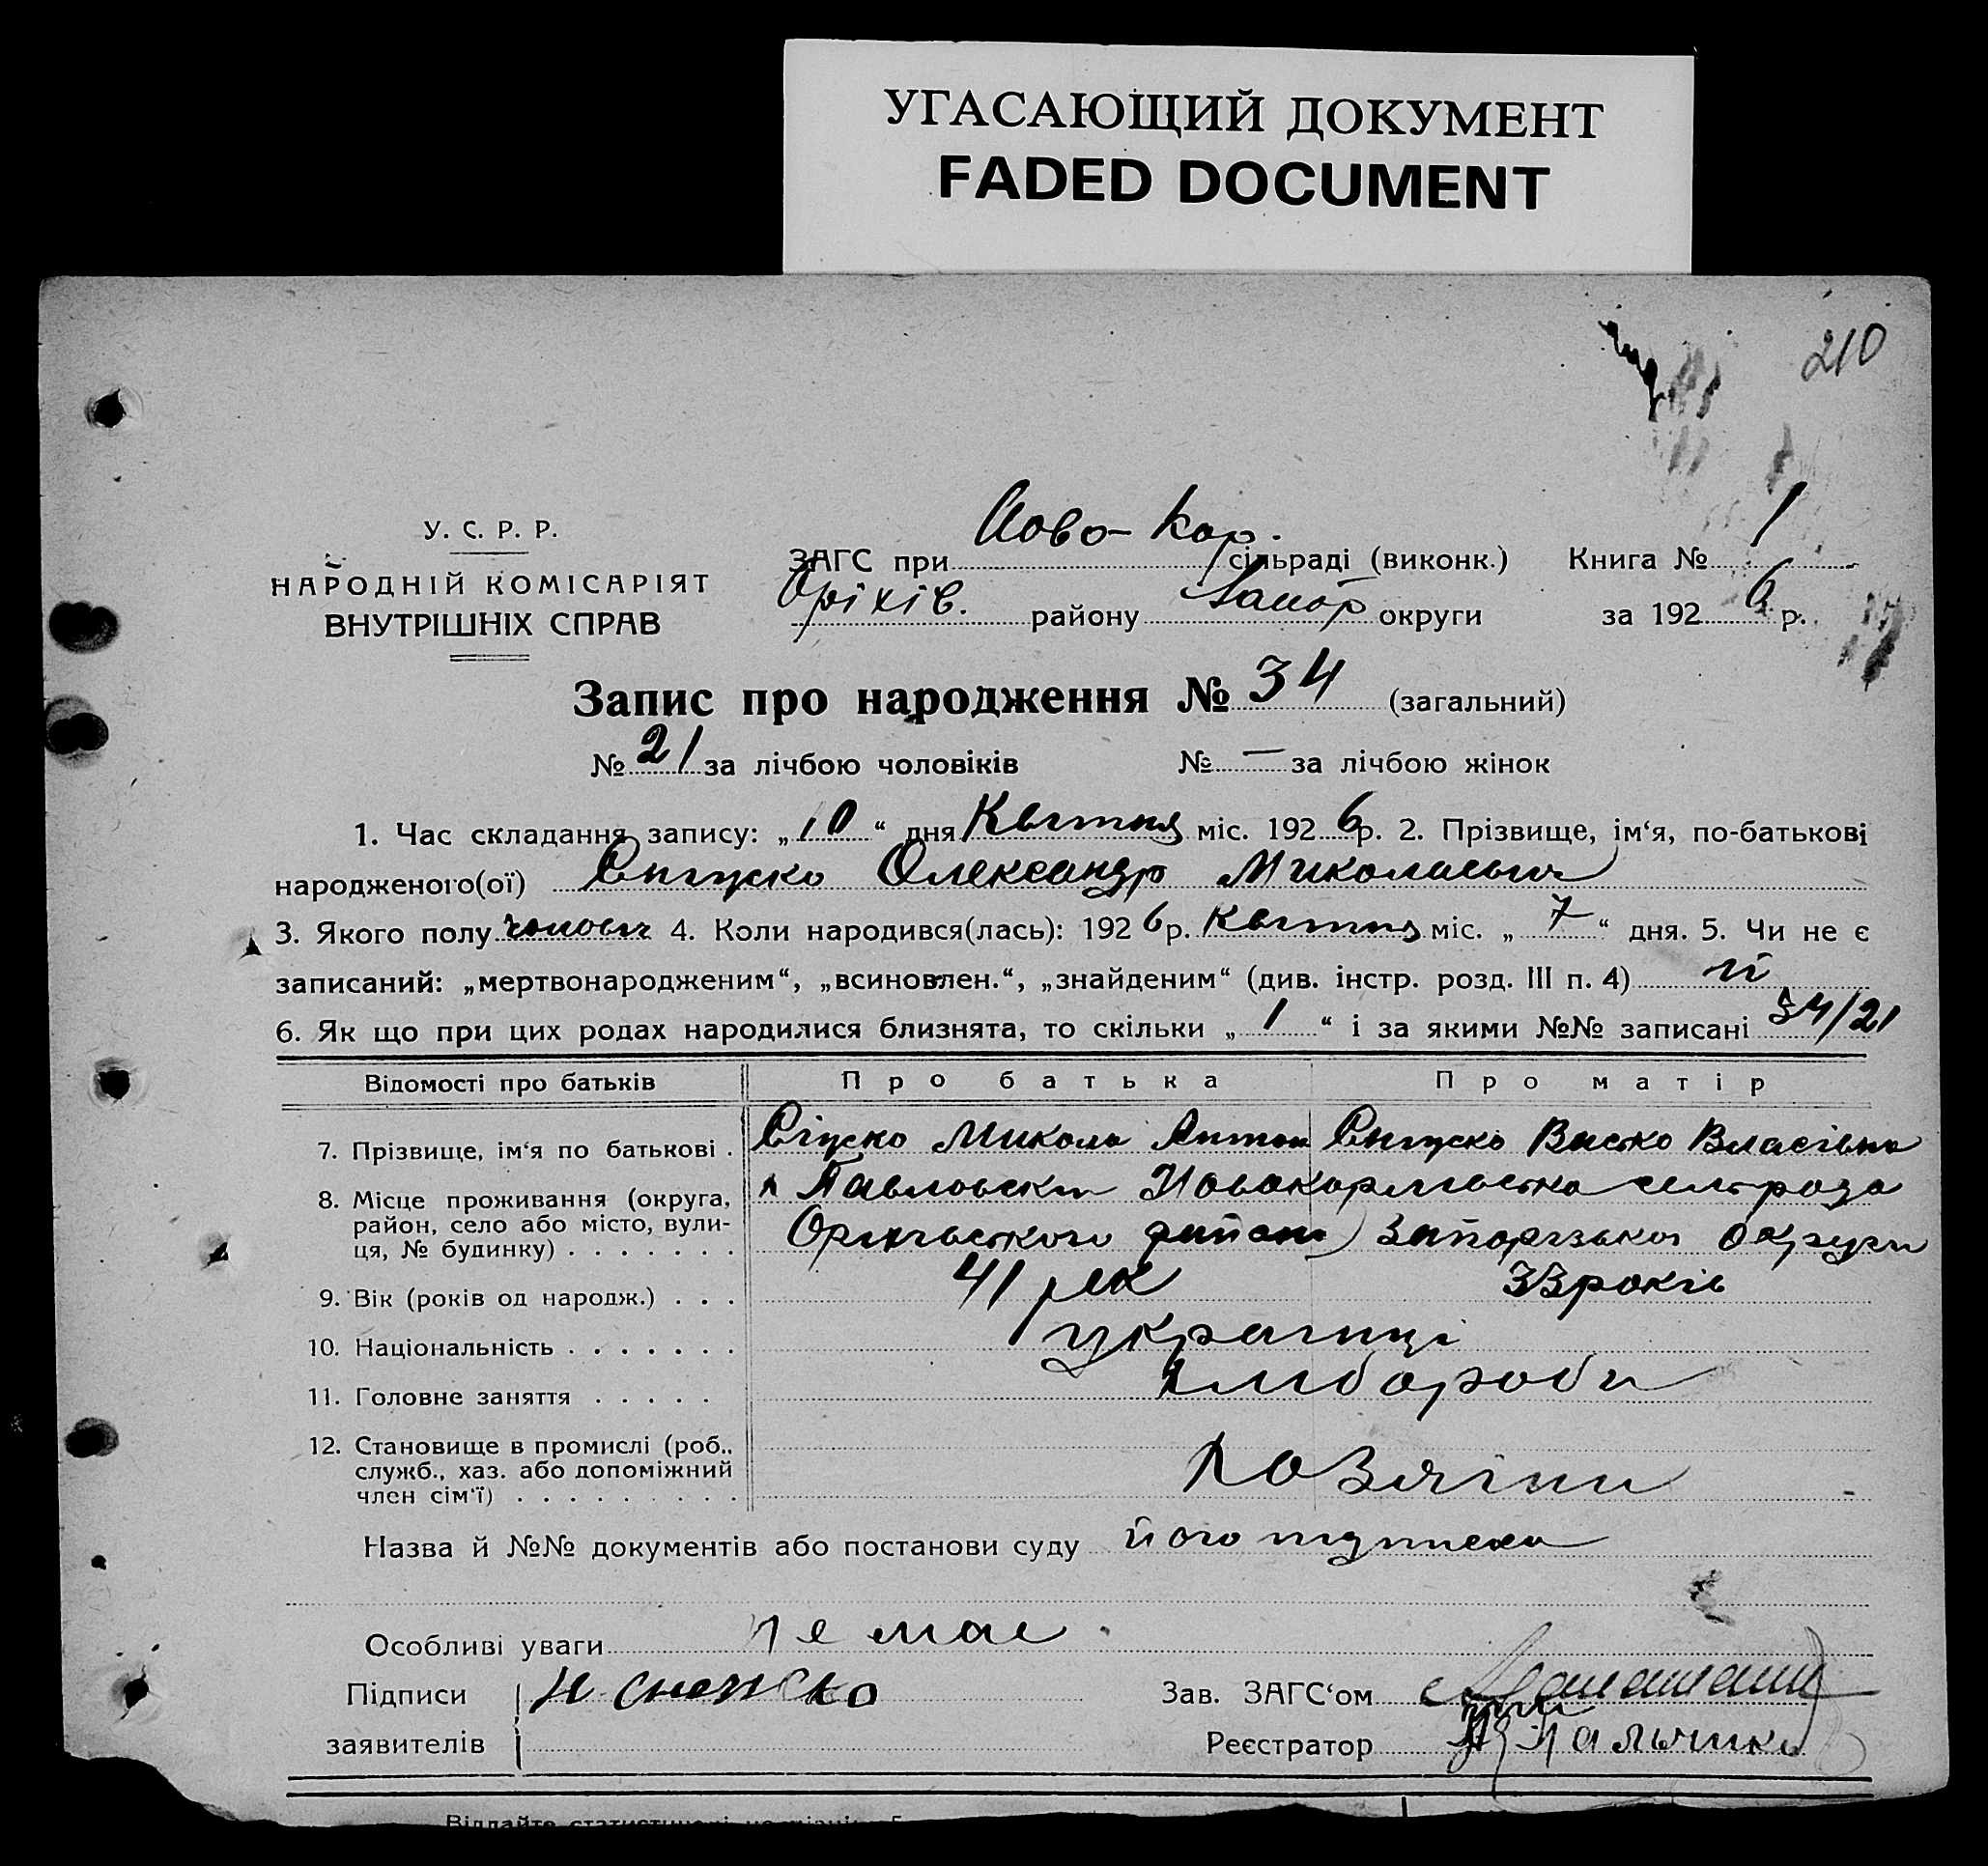 УГАСАЮЩИЙ ДОКУМЕНТ
FADED DOCUMENT
210
У. С. Р. Р.
НАРОДНІЙ КОМІСАРІЯТ
ВНУТРІШНІХ СПРАВ
ЗАГС при Ново-Кар. сільраді (виконк.) Книга № 1
Оріхів. району Запор округи за 1926 р.
Запис про народження № 34 (загальний)
№ 21 за лічбою чоловіків № — за лічбою жінок
1. Час складання запису: „10“ дня Квітня міс. 1926 р. 2. Прізвище, ім‘я, по-батькові
народженого(ої) Олександр Миколаевич
3. Якого полу 4. Коли народився(лась): 1926 р. Квітня міс. „7“ дня. 5. Чи не є
записаний: „мертвонародженим“, „всиновлен.“, „знайденим“ (див. інстр. розд. III п. 4)
6. Як що при цих родах народилися близнята, то скільки „1“ і за якими №№ записані 34/21
Відомості про батьків Про батька Про матір
7. Прізвище, ім‘я по батькові . Микола Антон Власівна
8. Місце проживання (округа,
район, село або місто, вули-
ця, № будинку) . . . . . . .
Оріхівського району Запорізької округи
9. Вік (років од народж.) . . . 41 рік 33 років
10. Національність . . . . . . . українці
11. Головне заняття . . . . . хлібороби
12. Становище в промислі (роб.,
служб., хаз. або допоміжний
член сім‘ї) . . . . . . . . .
хозяїни
Назва й №№ документів або постанови суду його підписка
Особливі уваги не має
Підписи
заявителів
Зав. ЗАГС‘ом
Реєстратор